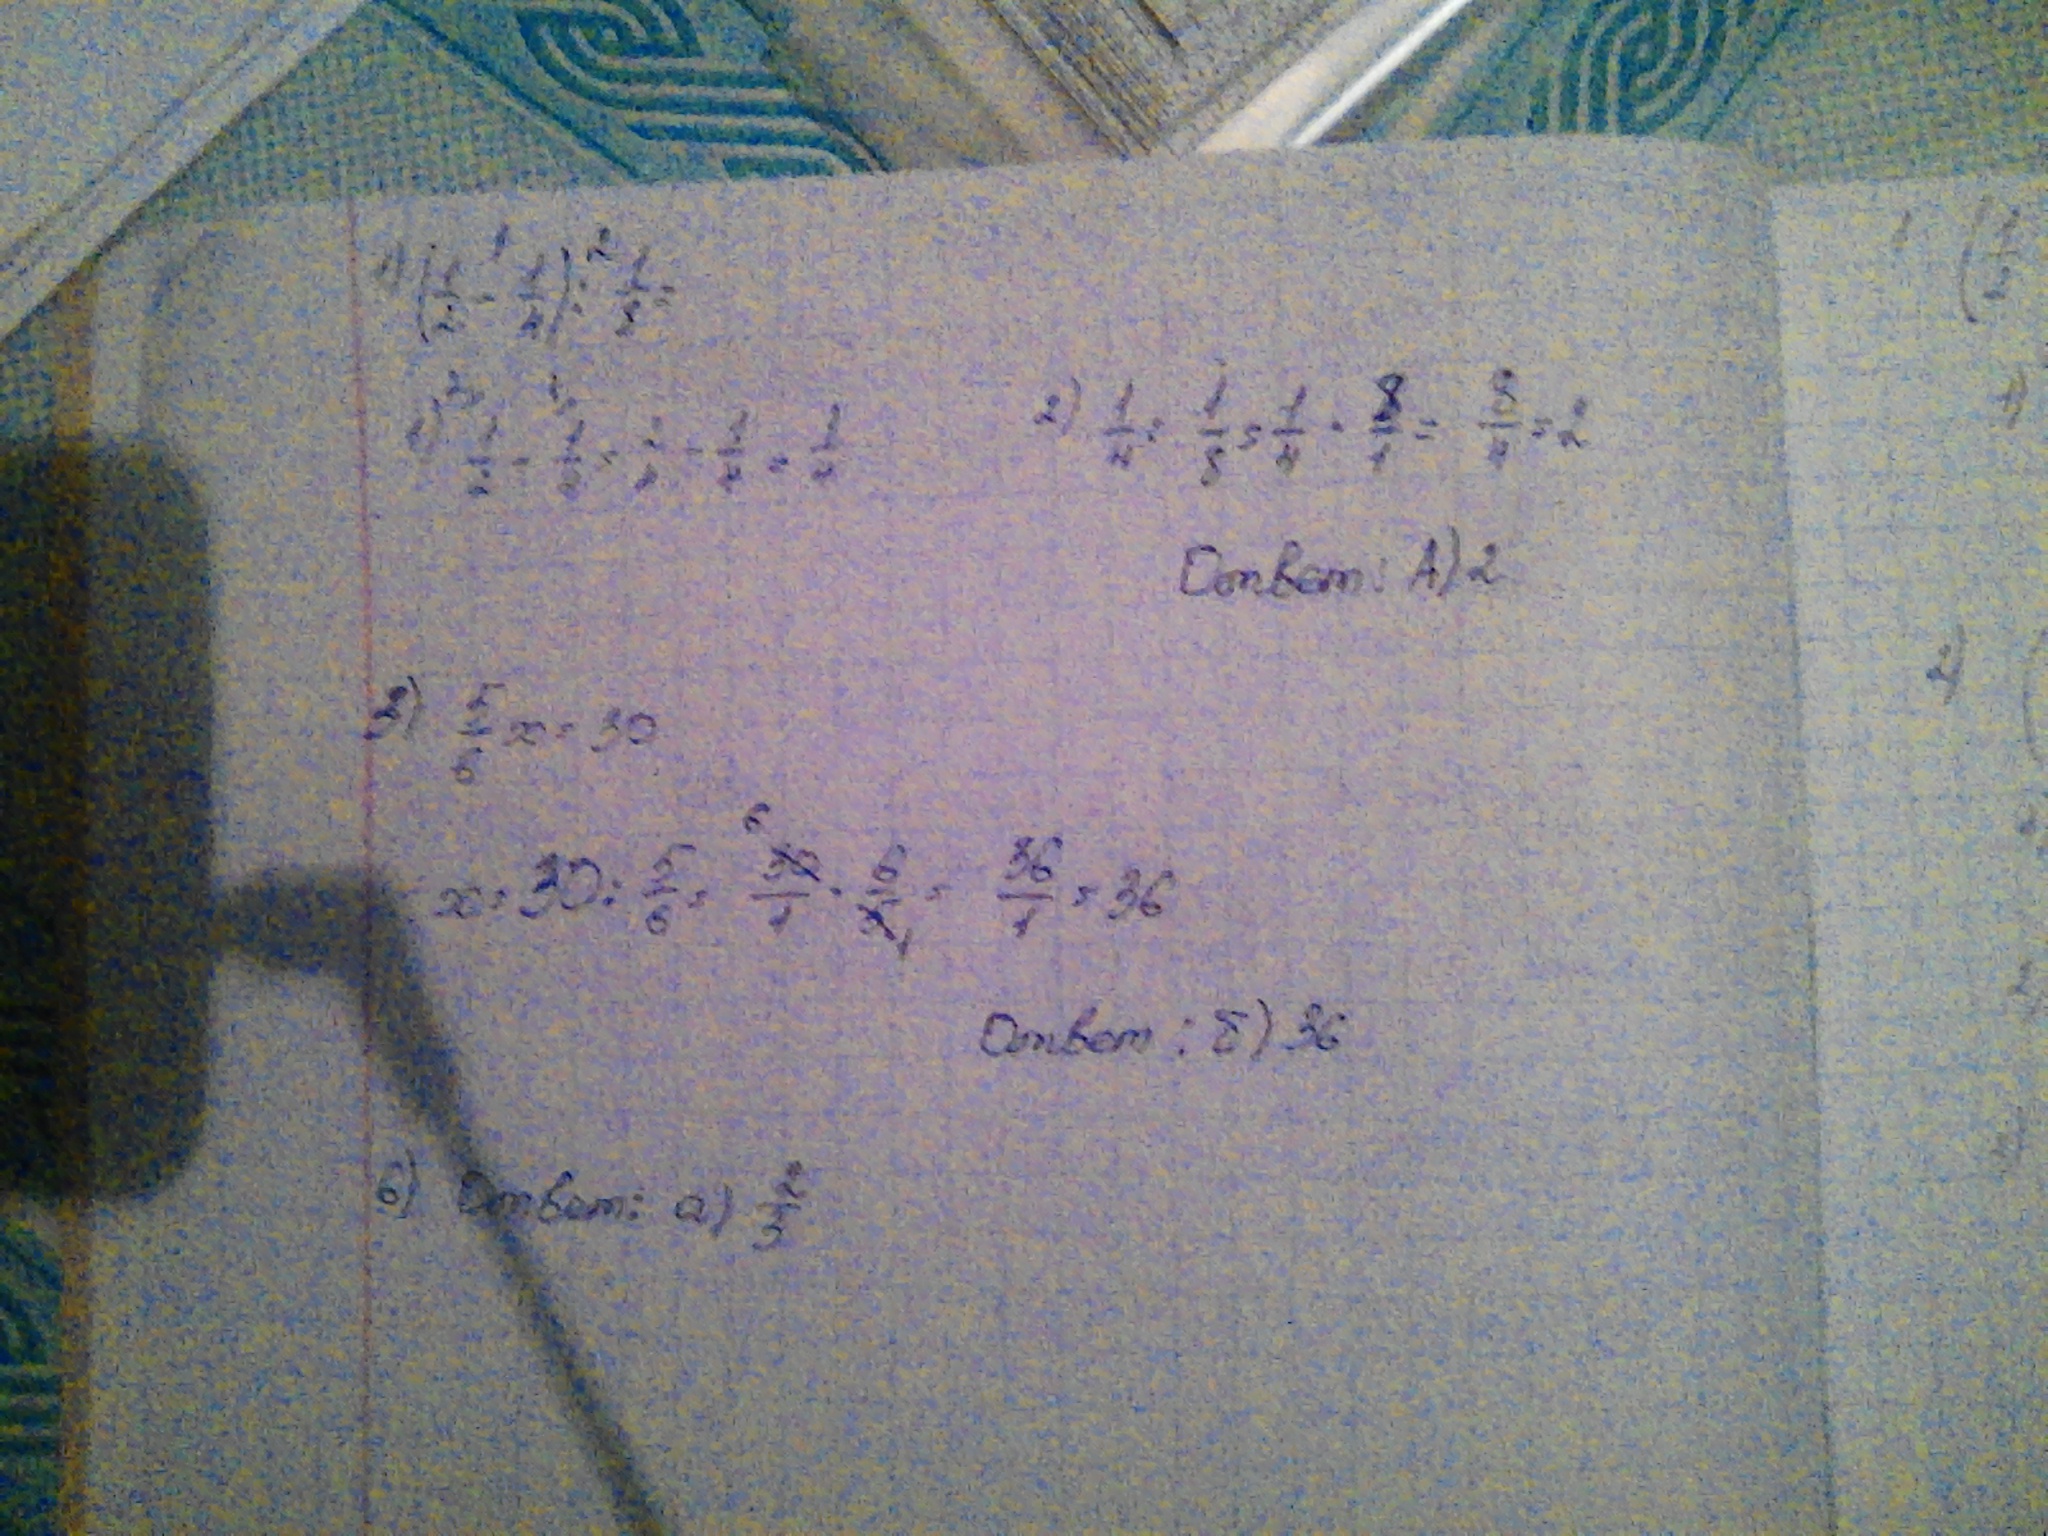 1) (1/2 - 1/4) : 1/8 =
1) 1/2 - 1/4 = 2/4 - 1/4 = 1/4
2) 1/4 : 1/8 = 1/4 · 8/1 = 8/4 = 2
Ответ: А) 2
2) 5/6 x = 30
x = 30 : 5/6 = 30/1 · 6/5 = 36/1 = 36
Ответ: б) 36
6) Ответ: а) 2/3